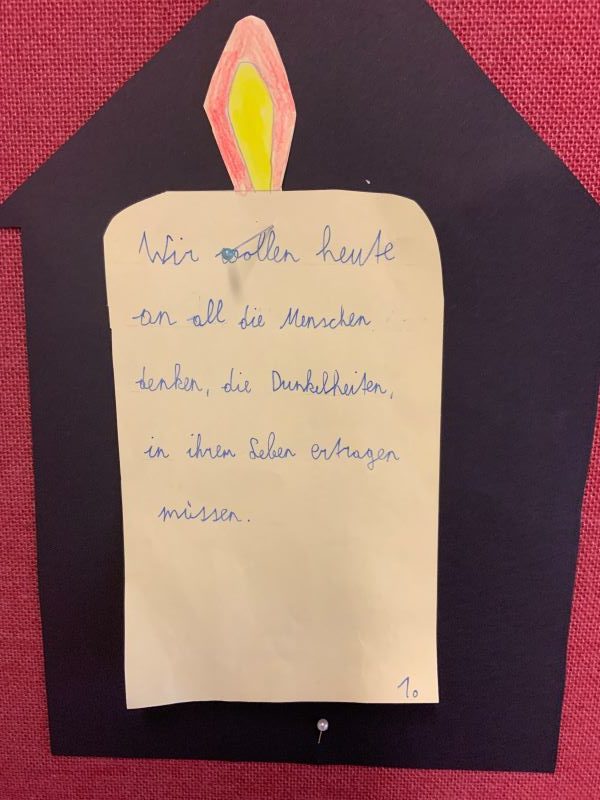 Wir wollen heute
an all die Menschen
denken, die Dunkelheiten,
in ihrem Leben ertragen
müssen.
10